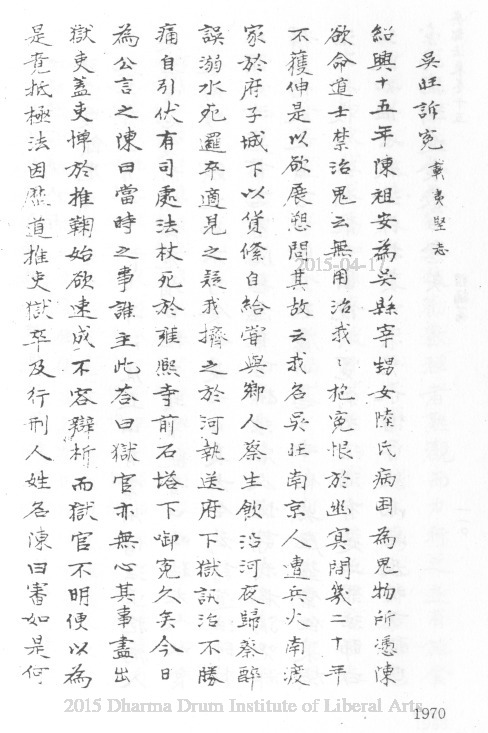 吳旺訴冤 載夷堅志
紹興十五年陳祖安為吳縣宰甥女陸氏病困為鬼物所憑陳
欲命道士禁治鬼云無用治我〻抱冤恨於幽冥間幾二十年
不獲伸是以欲展懇問其故云我名吳旺南京人遭兵火南渡
家於府子城下以貨絛自給嘗與鄉人蔡生飲沿河夜歸蔡醉
誤溺水死邏卒適見之疑我擠之於河執送府下獄訊治不勝
痛自引伏有司處法杖死於雍熙寺前石塔下啣冤久矣今日
為公言之陳曰當時之事誰主此荅曰獄官亦無心其事盡出
獄吏蓋吏憚於推鞠始欲速成不容辯析而獄官不明便以為
是竟抵極法因歷道推吏獄卒及行刑人姓名陳曰審如是何
2015-04-17
2015 Dharma Drum Institute of Liberal Arts
1970